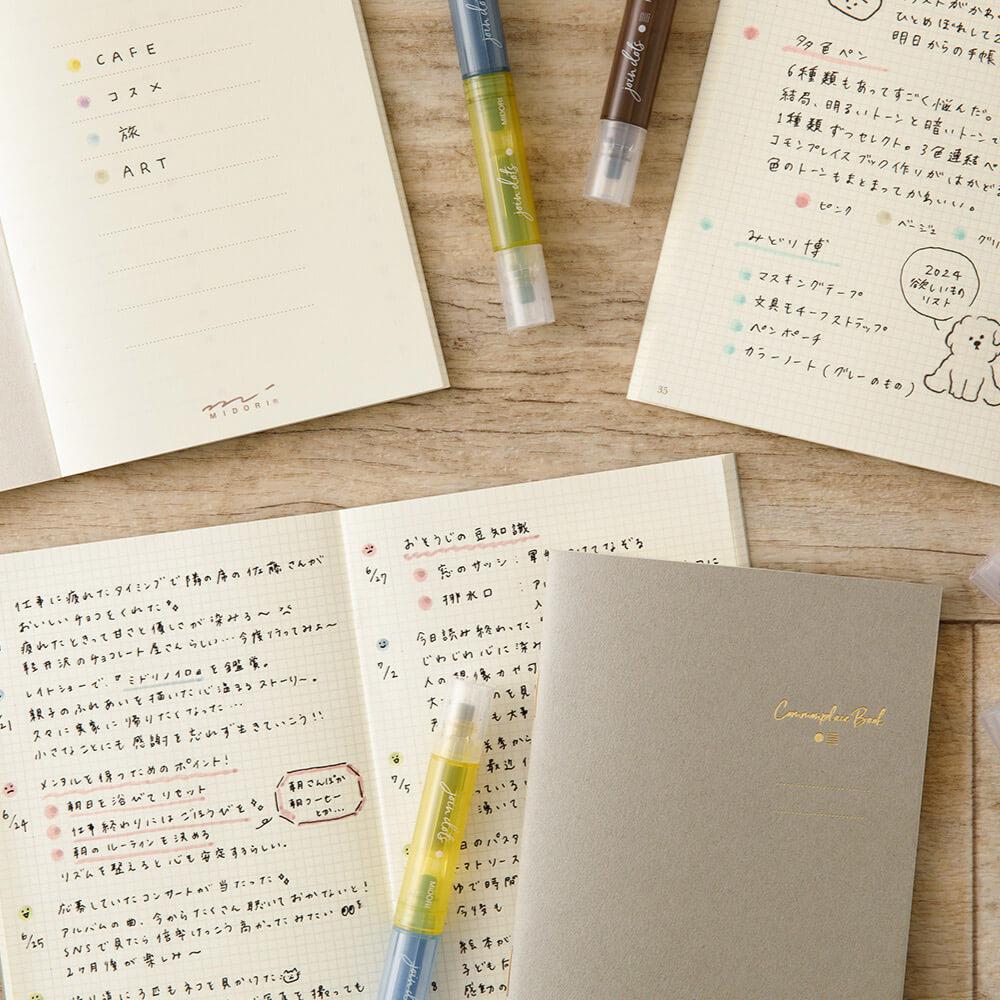 CAFE
コスメ
旅
ART
MIDORI®
join dots
MIDORI
join dots
join dots
ひとめぼれして2
明日からの手帳
多色ペン
6種類もあってすごく悩んだ。
結局、明るいトーンと暗いトーンで
1種類ずつセレクト。3色連結ペ
コモンプレイスブック作りがはかどる
色のトーンもまとまってかわいい。
ピンク
ベージュ
グリ
みどり博
マスキングテープ
文具モチーフストラップ
ペンポーチ
カラーノート(グレーのもの)
2024
欲しいもの
リスト
35
仕事に疲れたタイミングで隣の席の佐藤さんが
おいしいチョコをくれた
疲れたときって甘さと優しさが染みる〜
軽井沢のチョコレート屋さんらしい…今度行ってみよ〜
レイトショーで、『ミドリノイロ』を鑑賞。
親子のふれあいを描いた心温まるストーリー。
久々に実家に帰りたくなった…
小さなことにも感謝を忘れず生きていこう!!
メンタルを保つためのポイント!
6/24
朝日を浴びてリセット
仕事終わりにはごほうびを
朝のルーティンを決める
リズムを整えると心も安定するらしい。
朝さんぽか
朝コーヒー
とか…
6/25
応募していたコンサートが当たった
アルバムの曲、今からたくさん聴いておかないと!
SNSで見たら倍率けっこう高かったみたい
2ヶ月後が楽しみ〜
り道に3匹もネコを見かけた
おそうじの豆知識
6/27
窓のサッシ:
てなぞる
排水口 :
7/2
今日読み終わった
じわじわ心に深み
人の想像力や可
7/5
日のパスタ
マトソース
ゆで時間
今後も
絵本が
子ども
感動の
join dots
MIDORI
join dots
Commonplace Book